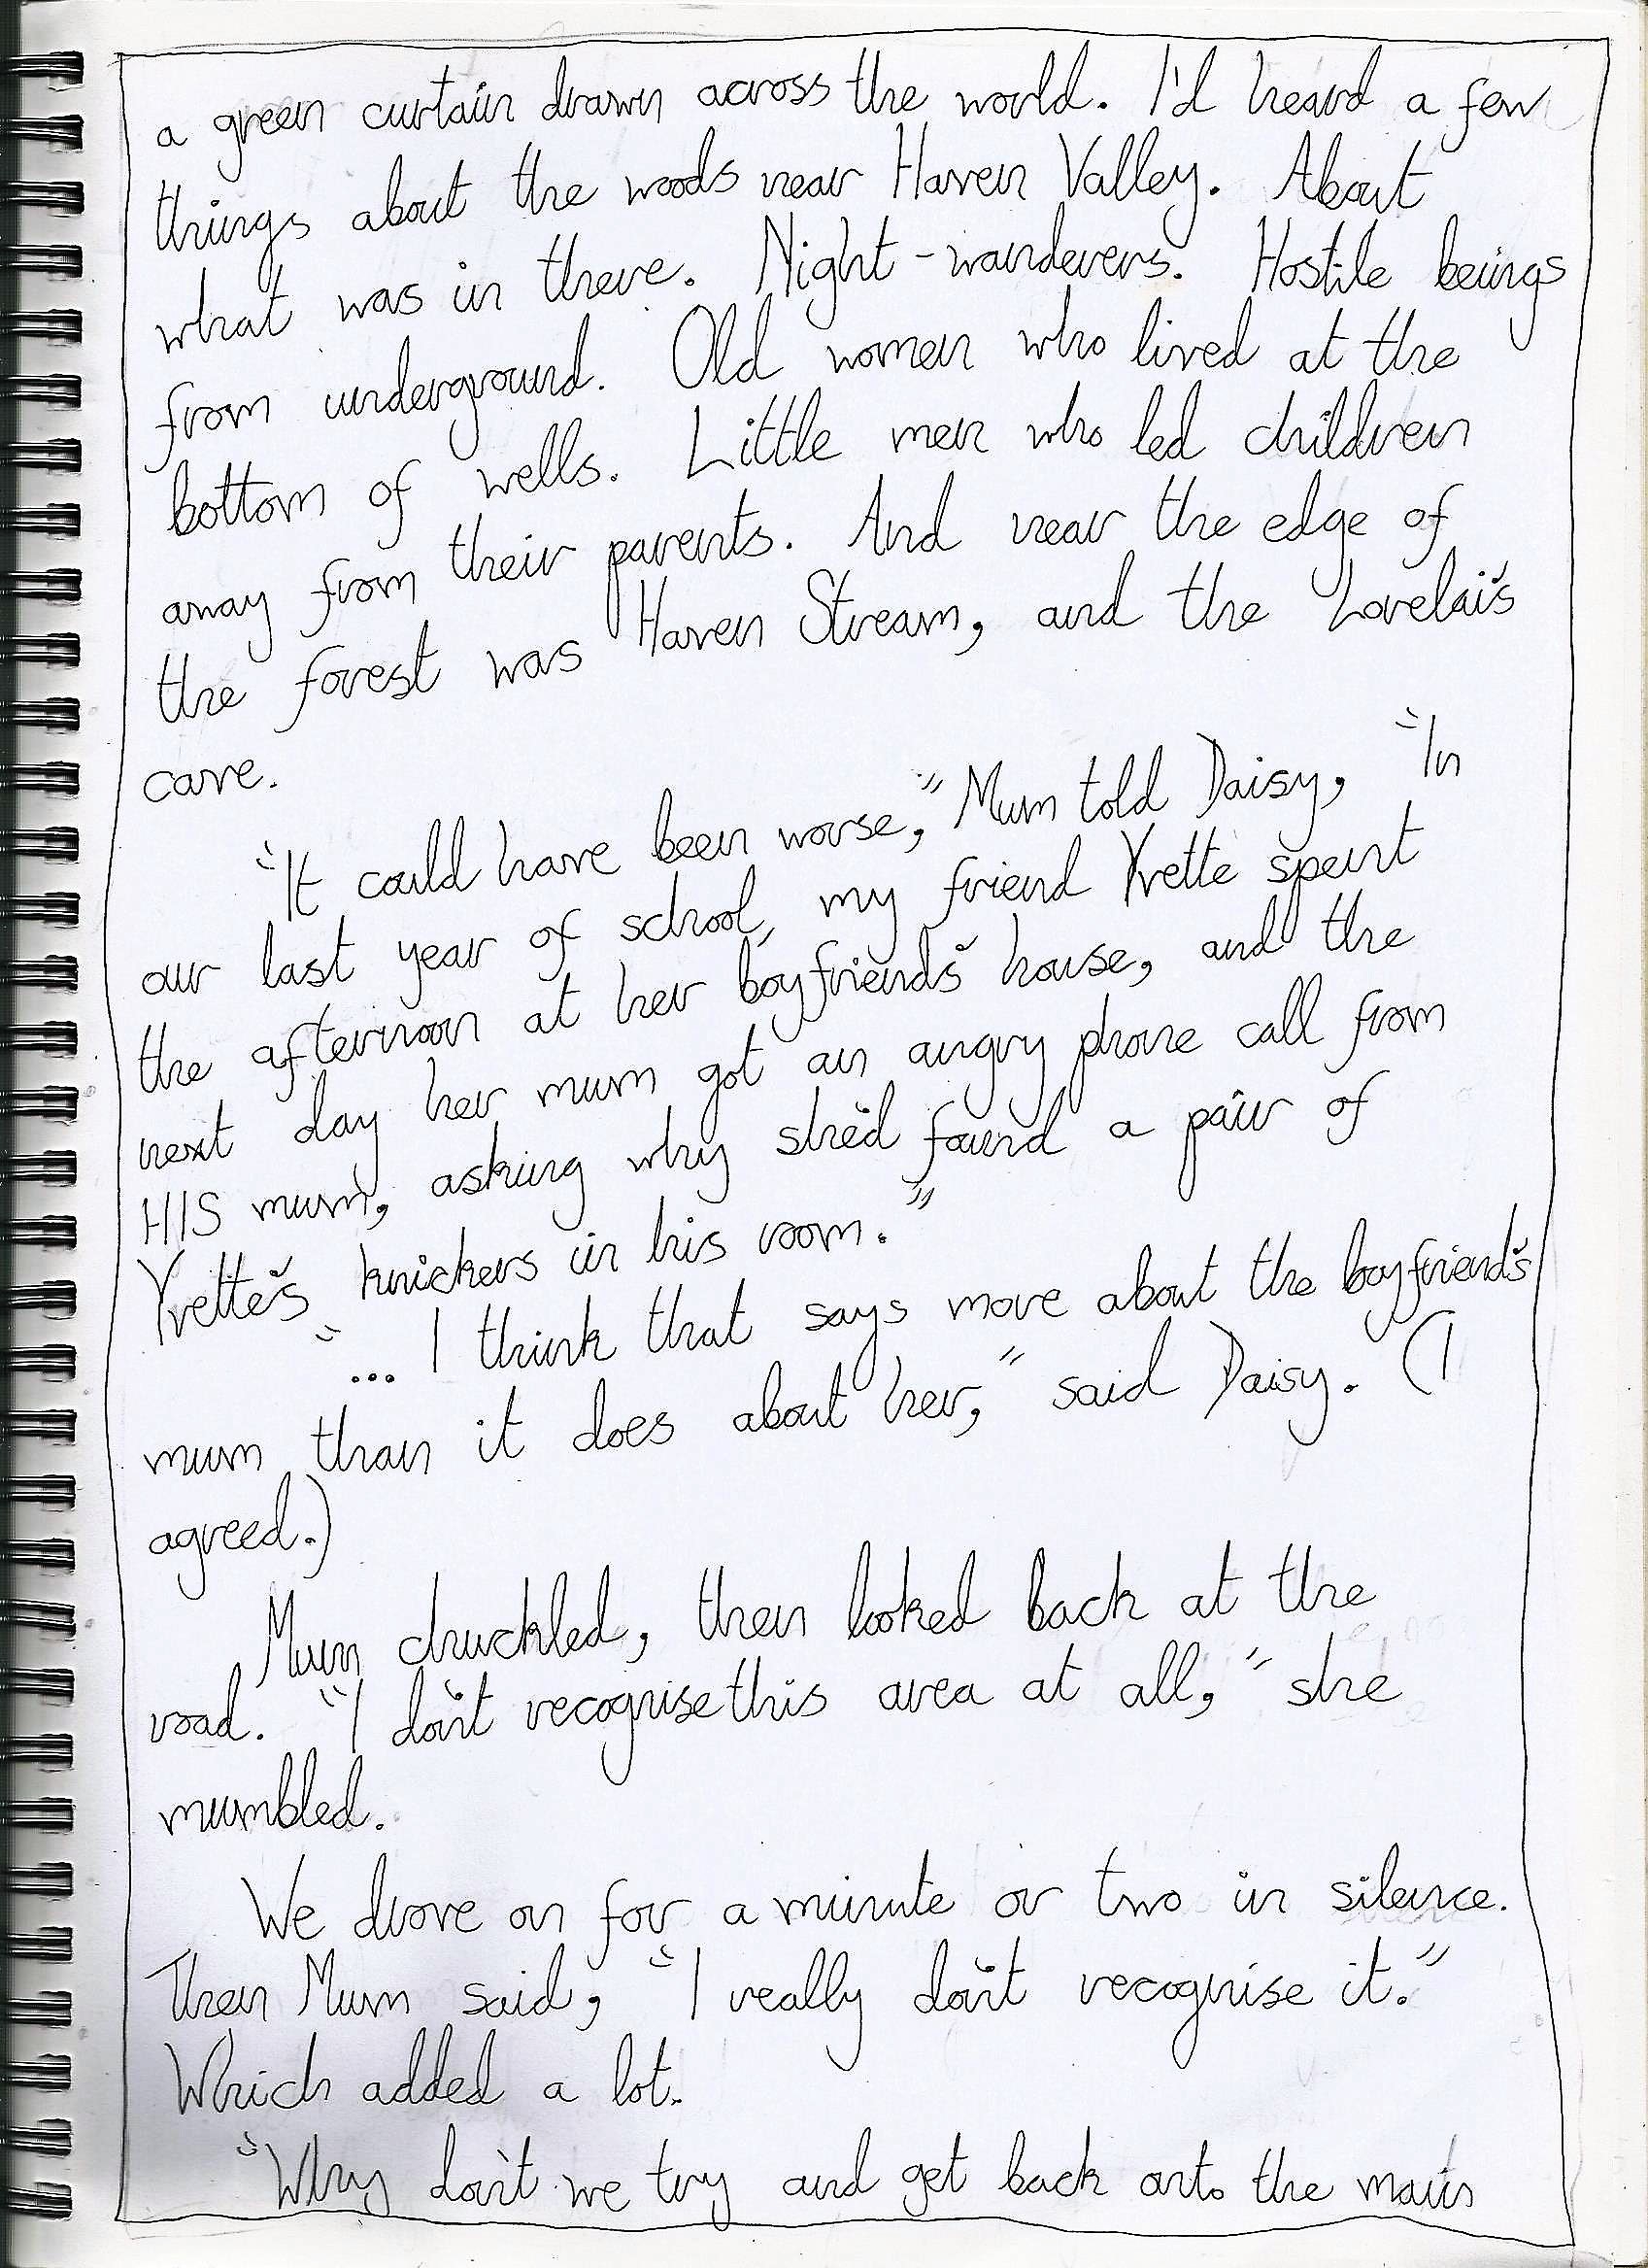 a green curtain drawn across the world. I'd heard a few
things about the woods near Haven Valley. About
what was in there. Night-wanderers. Hostile beings
from underground. Old women who lived at the
bottom of wells. Little men who led children
away from their parents. And near the edge of
the forest was Haven Stream, and the Lovelai's
cave.
"It could have been worse," Mum told Daisy, "In
our last year of school, my friend Yvette spent
the afternoon at her boyfriend's house, and the
next day her mum got an angry phone call from
HIS mum, asking why she'd found a pair of
Yvette's knickers in his room."
"... I think that says more about the boyfriend's
mum than it does about her," said Daisy. (I
agreed.)
Mum chuckled, then looked back at the
road. "I don't recognise this area at all," she
mumbled.
We drove on for a minute or two in silence.
Then Mum said, "I really don't recognise it."
Which added a lot.
"Why don't we try and get back onto the main